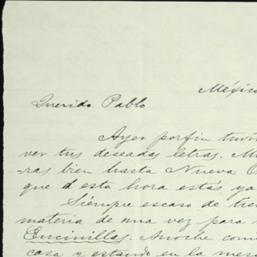 México
Querido Pablo
Ayer por fin tuv
ver tus deseadas letras. M
ras bien hasta Nueva O
que á esta hora estás ya
Siempre escaso de tie
materia de una vez para
Encinillas. Anoche com
casa y estando en la mes